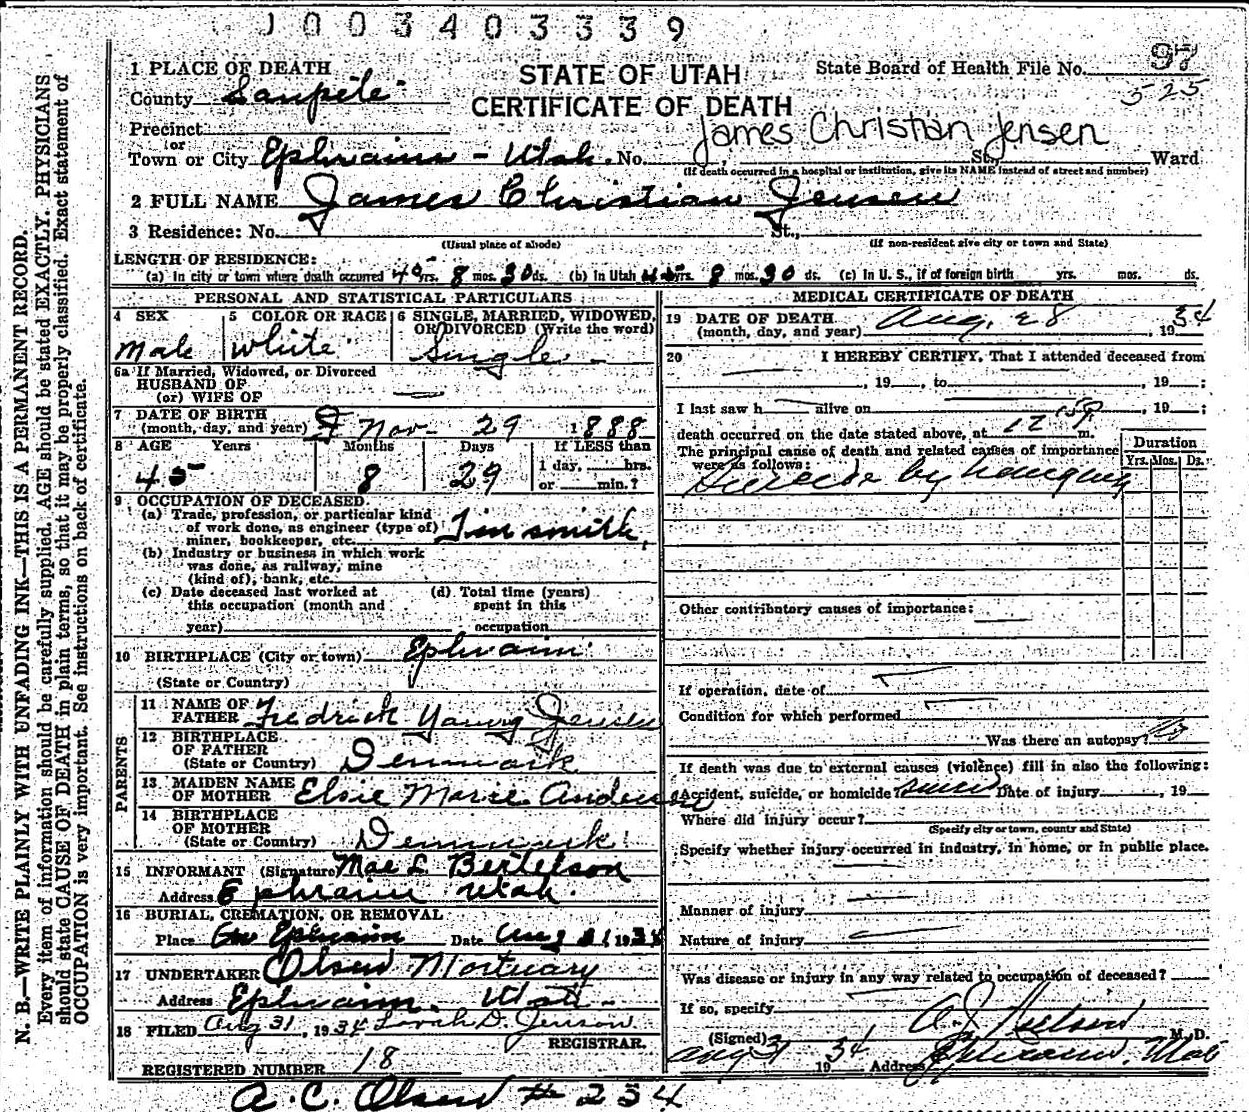 1003403339
N. B.—WRITE PLAINLY WITH UNFADING INK—THIS IS A PERMANENT RECORD.
Every item of information should be carefully supplied. AGE should be stated EXACTLY. PHYSICIANS
should state CAUSE OF DEATH in plain terms, so that it may be properly classified. Exact statement of
OCCUPATION is very important. See instructions on back of certificate.
1 PLACE OF DEATH
STATE OF UTAH
State Board of Health File No. 97
County Sanpete
CERTIFICATE OF DEATH
525
Precinct
or
James Christian Jensen
Town or City Ephraim - Utah. No. St., Ward
(If death occurred in a hospital or institution, give its NAME instead of street and number)
2 FULL NAME James Christian Jensen
3 Residence: No. St.,
(Usual place of abode) (If non-resident give city or town and State)
LENGTH OF RESIDENCE:
(a) In city or town where death occurred 45 yrs. 8 mos. 30 ds. (b) In Utah 45 yrs. 8 mos. 30 ds. (c) In U. S., if of foreign birth yrs. mos. ds.
PERSONAL AND STATISTICAL PARTICULARS
4 SEX 5 COLOR OR RACE 6 SINGLE, MARRIED, WIDOWED,
OR DIVORCED (Write the word)
Male White Single -
6a If Married, Widowed, or Divorced
HUSBAND OF
(or) WIFE OF —
7 DATE OF BIRTH
(month, day, and year) Nov- 29 1888
8 AGE Years Months Days If LESS than
45 8 29 1 day, hrs.
or min.?
9 OCCUPATION OF DECEASED.
(a) Trade, profession, or particular kind
of work done, as engineer (type of)
miner, bookkeeper, etc. Tinsmith.
(b) Industry or business in which work
was done, as railway, mine
(kind of), bank, etc.
(c) Date deceased last worked at
this occupation (month and
year)
(d) Total time (years)
spent in this
occupation
10 BIRTHPLACE (City or town) Ephraim
(State or Country)
PARENTS
11 NAME OF
FATHER Fredrick Young Jensen
12 BIRTHPLACE
OF FATHER
(State or Country) Denmark
13 MAIDEN NAME
OF MOTHER Elsie Marie Anderson
14 BIRTHPLACE
OF MOTHER
(State or Country) Denmark
15 INFORMANT (Signature) Mae L. Bertelson
Address Ephraim Utah.
16 BURIAL, CREMATION, OR REMOVAL
Place Ephraim Date Aug 31 1934
17 UNDERTAKER Olsen Mortuary
Address Ephraim. Utah-
18 FILED Aug 31, 1934 Sarah D. Jenson
REGISTRAR.
REGISTERED NUMBER 18
A. C. Olsen # 234
MEDICAL CERTIFICATE OF DEATH
19 DATE OF DEATH
(month, day, and year) Aug. 28, 1934
20 I HEREBY CERTIFY, That I attended deceased from
, 19 , to , 19 ;
I last saw h alive on , 19 ;
death occurred on the date stated above, at 12 m.
The principal cause of death and related causes of importance
were as follows:
Duration
Yrs. Mos. Ds.
Suicide by hanging
Other contributory causes of importance:
If operation, date of
Condition for which performed
Was there an autopsy? No
If death was due to external causes (violence) fill in also the following:
Accident, suicide, or homicide? Suicide Date of injury , 19
Where did injury occur?
(Specify city or town, county and State)
Specify whether injury occurred in industry, in home, or in public place.
Manner of injury
Nature of injury
Was disease or injury in any way related to occupation of deceased?
If so, specify
(Signed) A. J. Nielson M. D.
Aug 31 1934 Address Ephraim, Utah